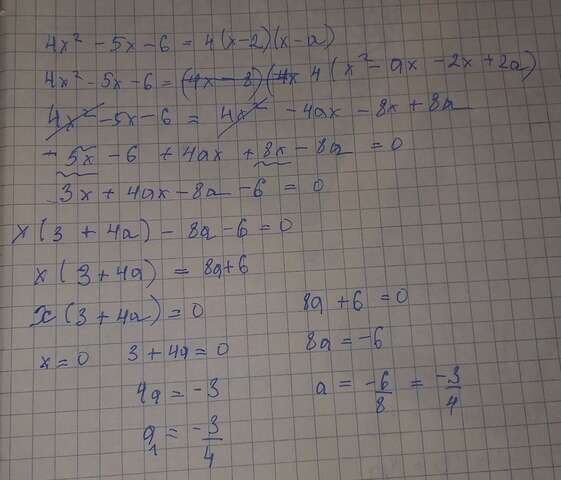 4x² - 5x - 6 = 4(x-2)(x-a)
4x² - 5x - 6 = (4x - 8)(4x 4(x² - ax - 2x + 2a)
4x² - 5x - 6 = 4x² - 4ax - 8x + 8a
- 5x - 6 + 4ax + 8x - 8a = 0
3x + 4ax - 8a - 6 = 0
x(3 + 4a) - 8a - 6 = 0
x(3 + 4a) = 8a + 6
x(3 + 4a) = 0
x = 0 3 + 4a = 0
4a = -3
a₁ = -3/4
8a + 6 = 0
8a = -6
a = -6/8 = -3/4